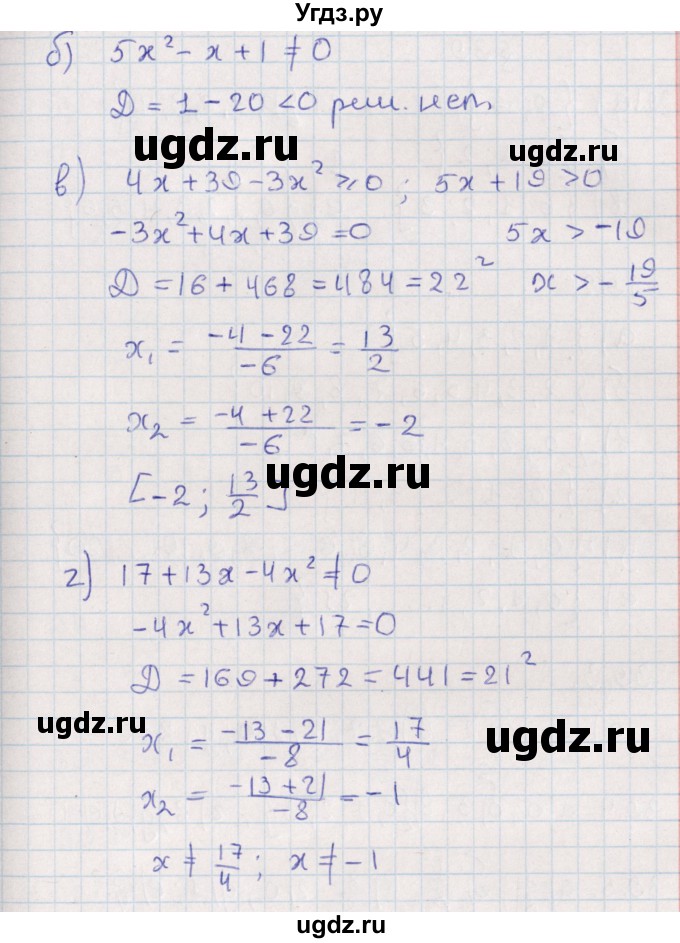 Угдз.ру
б) 5x² - x + 1 ≠ 0
Д = 1 - 20 < 0 реш. нет.
ugdz.ru ugdz.ru
в) 4x + 39 - 3x² ≥ 0 ; 5x + 19 > 0
-3x² + 4x + 39 = 0 5x > -19
Д = 16 + 468 = 484 = 22² x > - 19/5
x₁ = (-4 - 22)/(-6) = 13/2
x₂ = (-4 + 22)/(-6) = -2
ugdz.ru ugdz.ru
[-2 ; 13/2]
г) 17 + 13x - 4x² ≠ 0
-4x² + 13x + 17 = 0
Д = 169 + 272 = 441 = 21²
ugdz.ru ugdz.ru
x₁ = (-13 - 21)/(-8) = 17/4
x₂ = (-13 + 21)/(-8) = -1
x ≠ 17/4 ; x ≠ -1
ugdz.ru